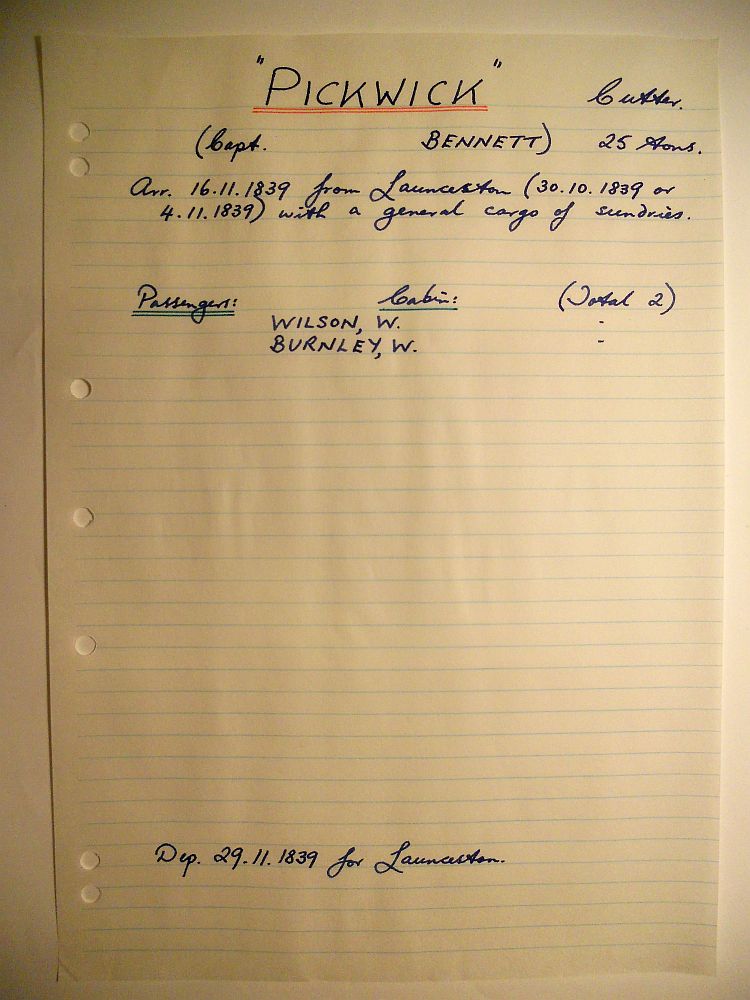 "PICKWICK" Cutter.
(Capt. BENNETT) 25 tons.
Arr. 16.11.1839 from Launceston (30.10.1839 or
4.11.1839) with a general cargo of sundries.
Passengers: Cabin: (Total 2)
WILSON, W. -
BURNLEY, W. -
Dep. 29.11.1839 for Launceston.